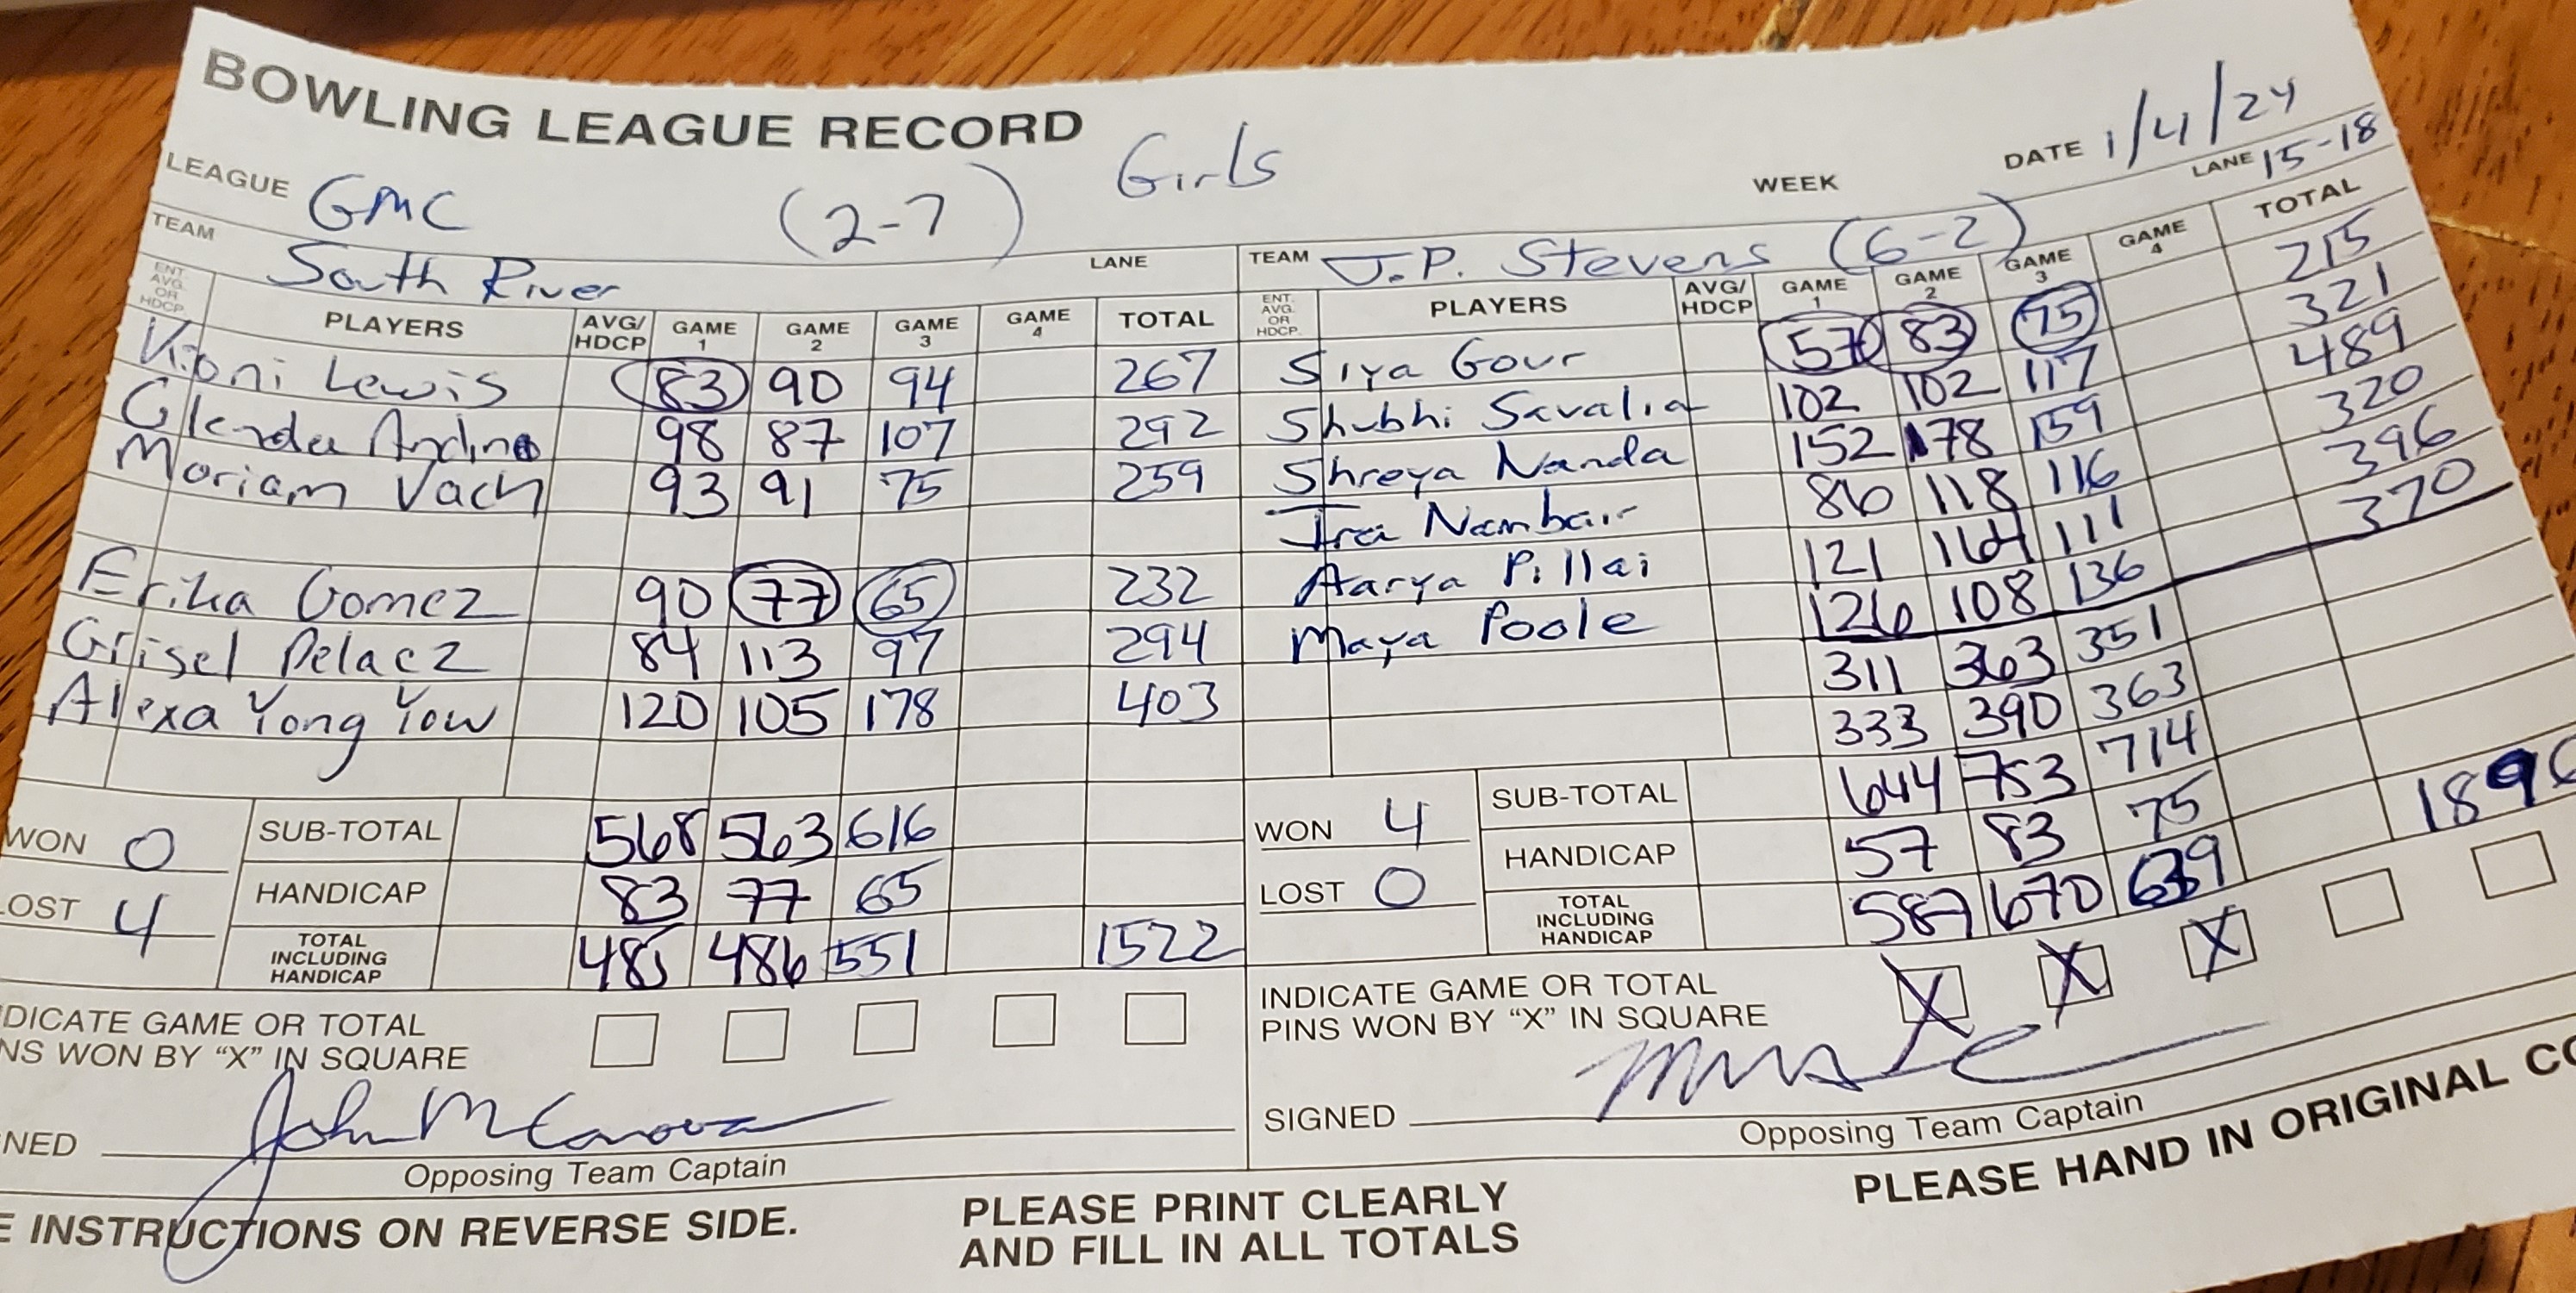 BOWLING LEAGUE RECORD
LEAGUE GMC (2-7) Girls WEEK DATE 1/4/24
LANE 15-18
TEAM South River LANE
ENT. AVG. OR HDCP. PLAYERS AVG/HDCP GAME 1 GAME 2 GAME 3 GAME 4 TOTAL
Kioni Lewis 83 90 94 267
Glenda Andino 98 87 107 292
Moriam Vach 93 91 75 259
Erika Gomez 90 77 65 232
Grisel Pelaez 84 113 97 294
Alexa Yong Yow 120 105 178 403
WON 0 SUB-TOTAL 568 563 616
LOST 4 HANDICAP 83 77 65
TOTAL INCLUDING HANDICAP 485 486 551 1522
DICATE GAME OR TOTAL
NS WON BY "X" IN SQUARE
NED John
Opposing Team Captain
TEAM J.P. Stevens (6-2)
ENT. AVG. OR HDCP. PLAYERS AVG/HDCP GAME 1 GAME 2 GAME 3 GAME 4 TOTAL
Siya Gour 57 83 75 215
Shubhi Savalia 102 102 117 321
Shreya Nanda 152 178 159 489
Ira Nambair 86 118 116 320
Aarya Pillai 121 164 111 396
Maya Poole 126 108 136 370
311 363 351
333 390 363
WON 4 SUB-TOTAL 644 753 714
LOST 0 HANDICAP 57 83 75
TOTAL INCLUDING HANDICAP 587 670 639 1896
INDICATE GAME OR TOTAL
PINS WON BY "X" IN SQUARE X X X
SIGNED
Opposing Team Captain
E INSTRUCTIONS ON REVERSE SIDE.
PLEASE PRINT CLEARLY
AND FILL IN ALL TOTALS
PLEASE HAND IN ORIGINAL CO